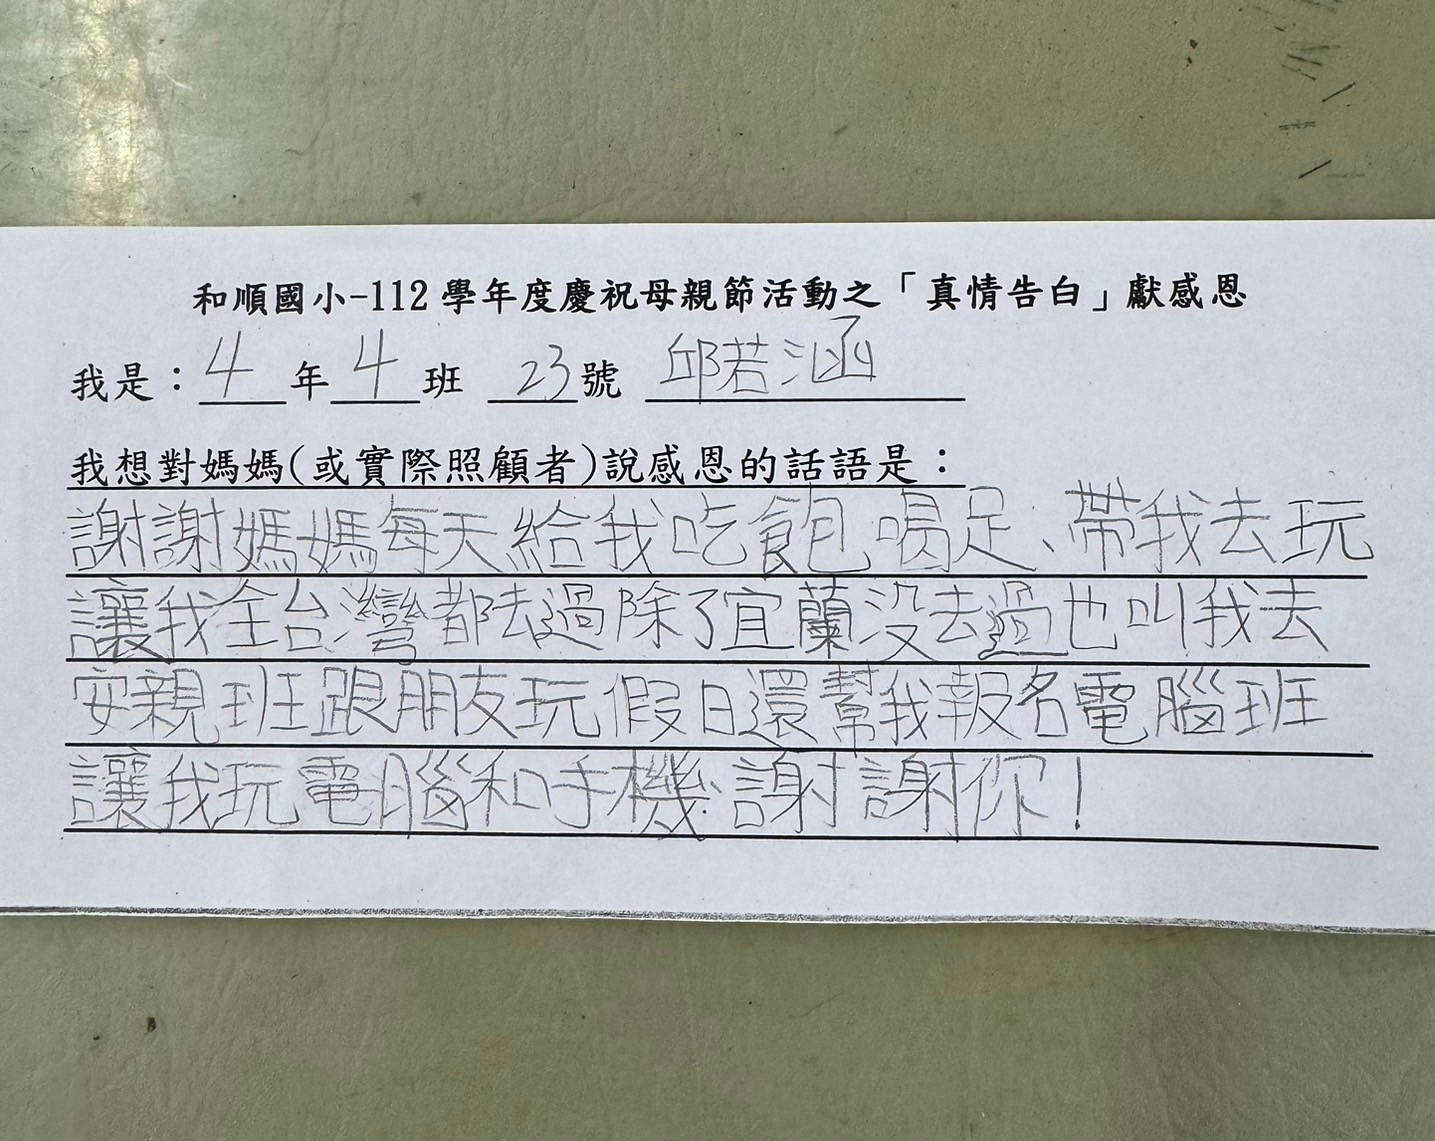 和順國小-112學年度慶祝母親節活動之「真情告白」獻感恩
我是：4年4班 23號 邱若涵
我想對媽媽(或實際照顧者)說感恩的話語是：
謝謝媽媽每天給我吃飽喝足、帶我去玩
讓我全台灣都去過除了宜蘭沒去過也叫我去
安親班跟朋友玩假日還幫我報名電腦班
讓我玩電腦和手機謝謝你!